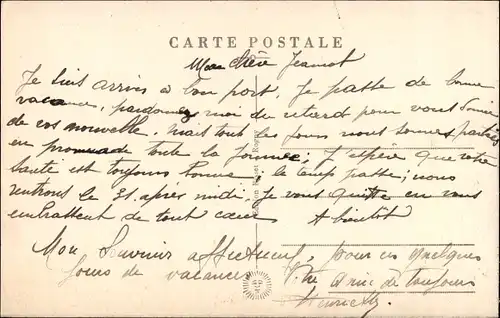 CARTE POSTALE
Mon chère Jeannot
Je suis arrivé à bon port. Je passe de bonne
vacance, pardonnez moi du retard pour vous donne
de vos nouvelle, mais tout les jours nous sommes parties
en promenade toute la journée ; J'espère que votre
santé est toujours bonne, le temp passe ; nous
rentrons le 31 après midi. Je vous quitte en vous
embrassent de tout cœur A bientôt
Mon Souvenir affectueux, pour ces quelques
jours de vacances
amie de toujours